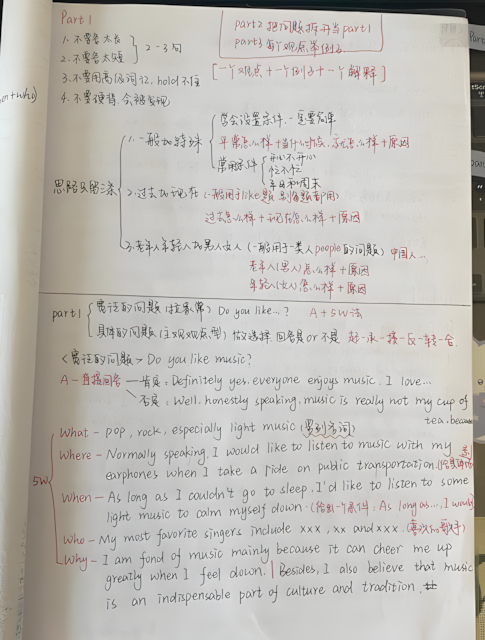 Part 1
part2 把问题拆开当part1
part3 每个观点举例子
[一个观点+一个例子+一个解释]
1. 不要答太长
2. 不要答太短
2-3句
3. 不要用高级词汇, hold不住
4. 不要硬背, 会被发现
on+who)
思路只留三条
1. 一般加特殊
学会设置条件, 一定要简单
平常怎么样+当什么时候, 我怎么样+原因
常用条件
开心不开心
忙不忙
平日和周末
2. 过去加现在 (一般用于like题, 别的题都用)
过去怎么样+现在怎么样+原因
3. 老年人年轻人加男人女人 (一般用于一类人people的问题) 中国人...
老年人(男人)怎么样+原因
年轻人(女人)怎么样+原因
part1
宽泛的问题 Do you like...? A+5W法
具体的问题 (主观观点型) 做选择, 回答是or不是 起-承-接-反-转-合.
<宽泛的问题> Do you like music?
A-直接回答
肯定: Definitely yes, everyone enjoys music, I love...
否定: Well, honestly speaking, music is really not my cup of
tea, because
5W
What - pop, rock, especially light music
Where - Normally speaking, I would like to listen to music with my
earphones when I take a ride on public transportation.
When - As long as I couldn't go to sleep, I'd like to listen to some
light music to calm myself down. (给到一个条件: As long as..., I would)
Who - My most favorite singers include xxx, xx and xxx. (喜欢的歌手)
Why - I am fond of music mainly because it can cheer me up
greatly when I feel down. | Besides, I also believe that music
is an indispensable part of culture and tradition.